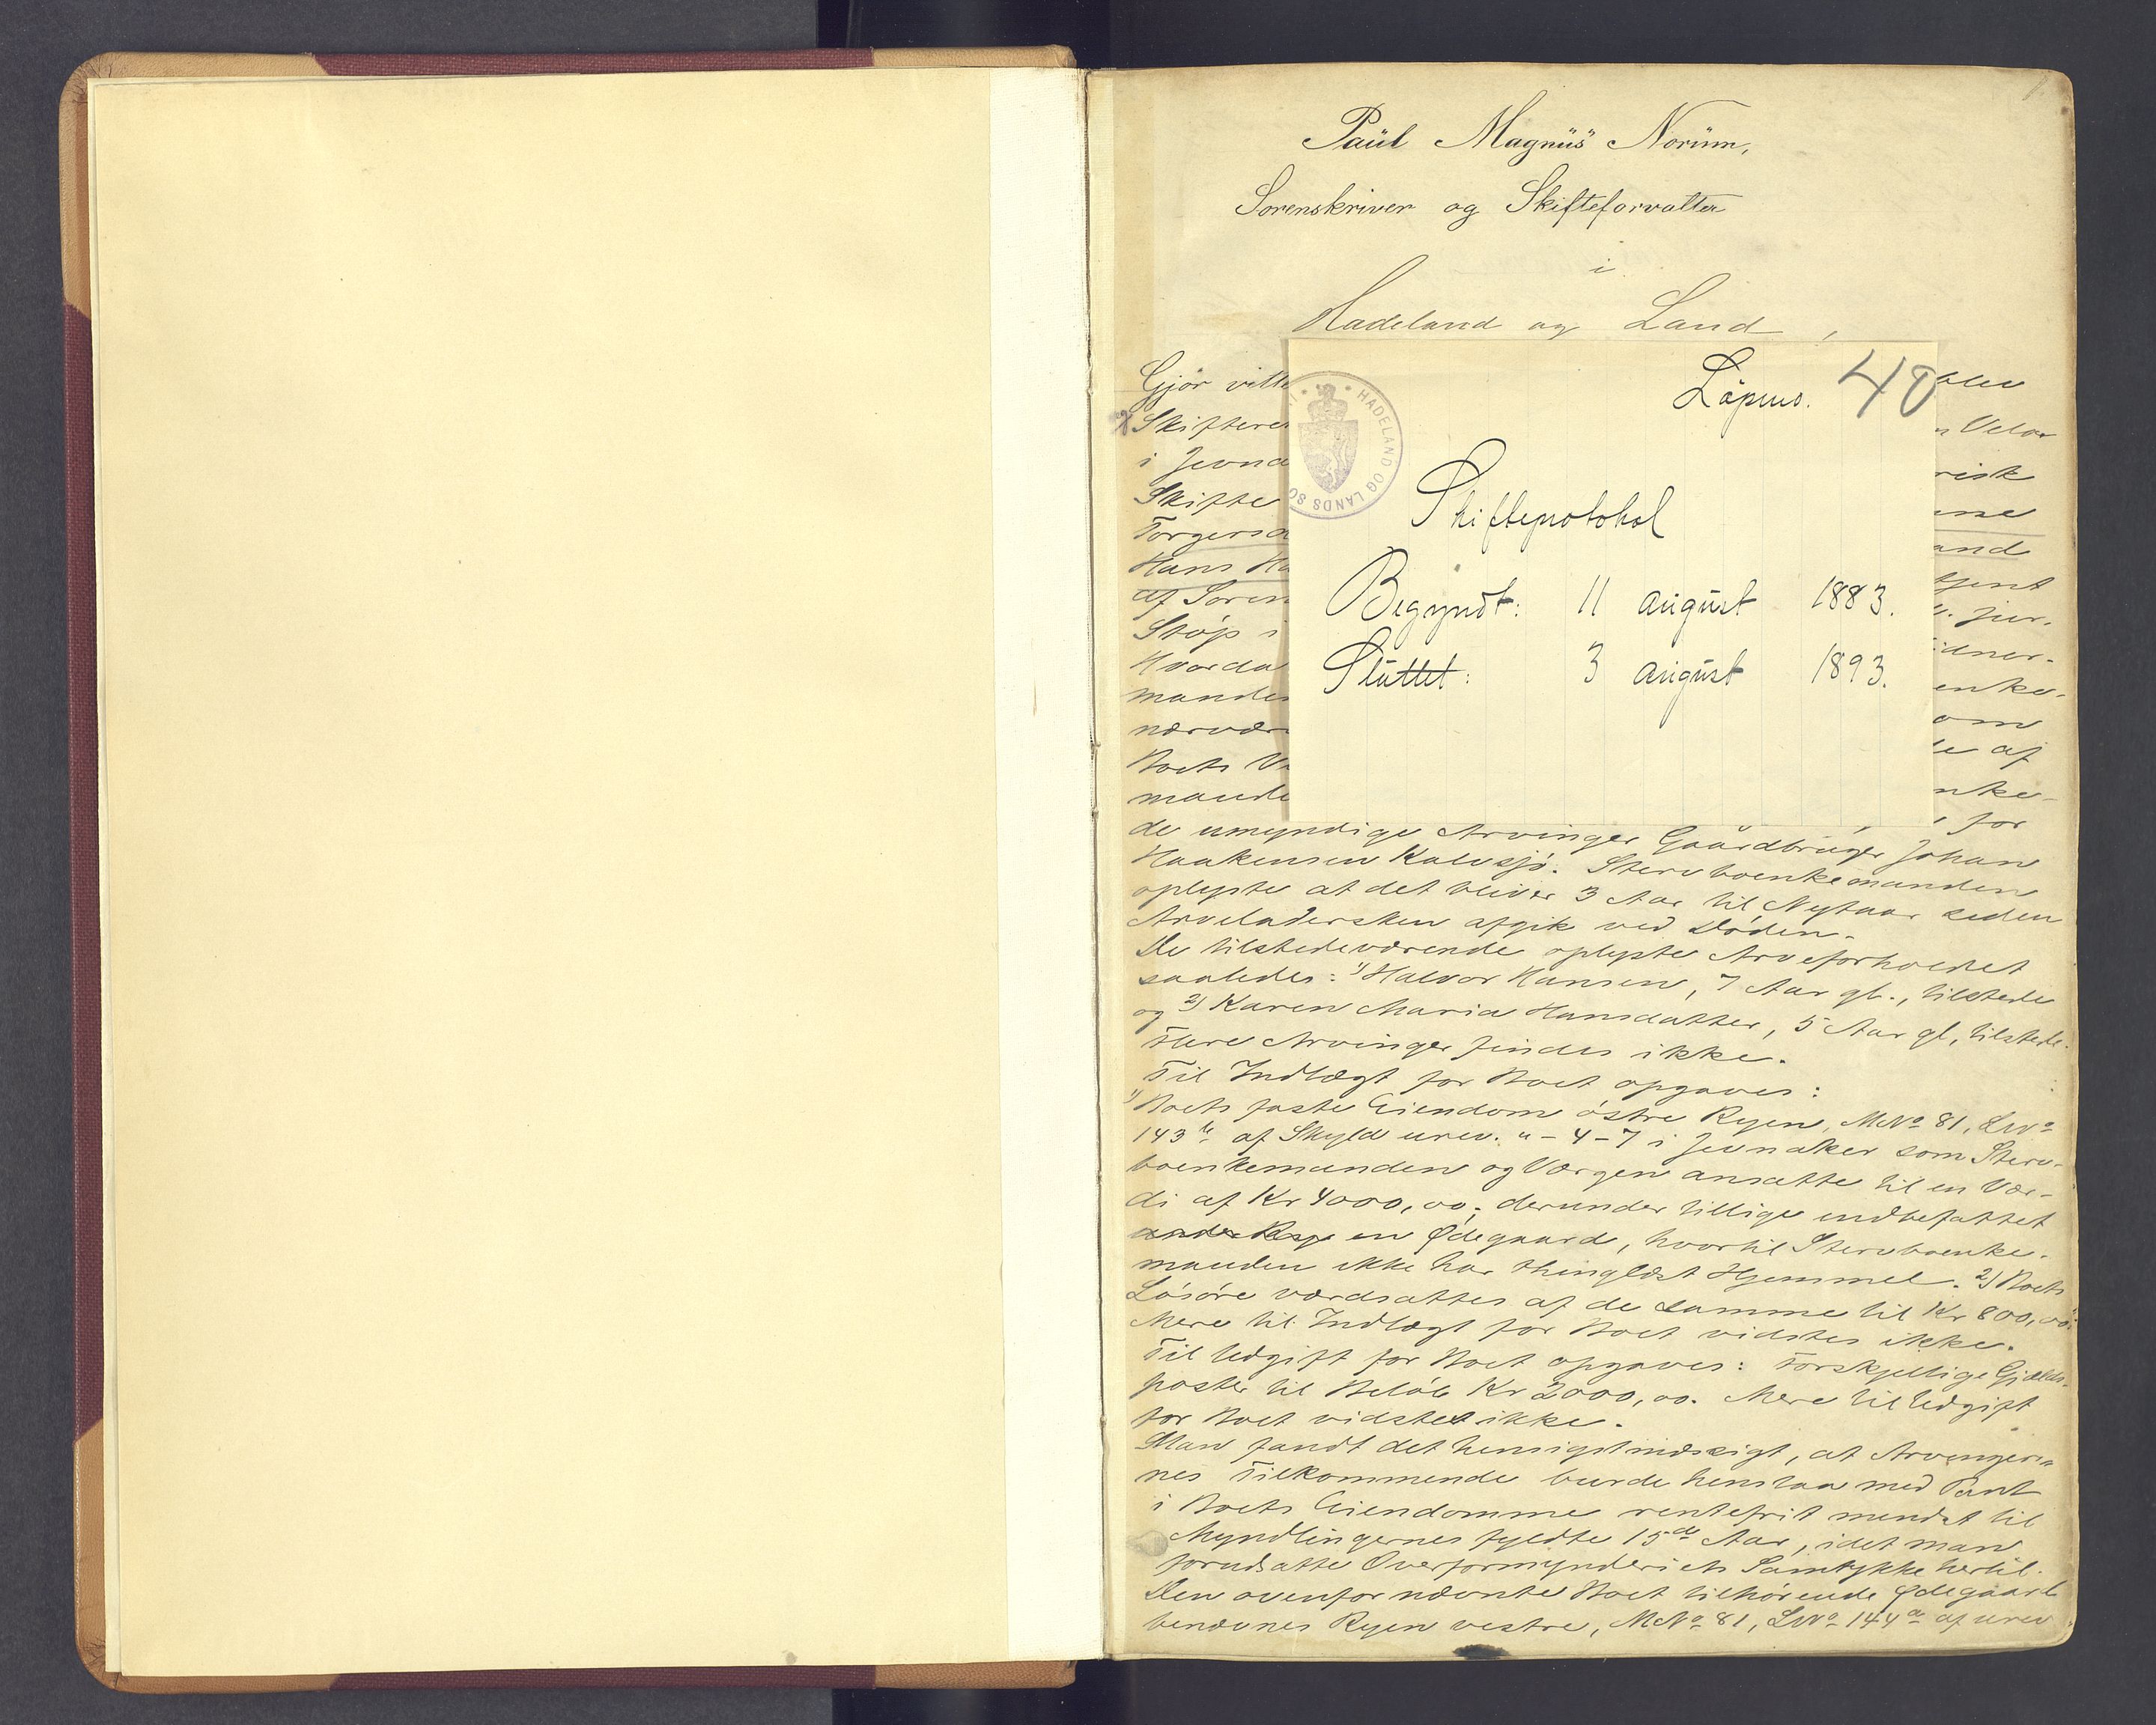 Paul Magnus Norum,
Sorenskriver og Skifteforvalter
i
Hadeland og Land,
Løpeno. 40
HADELAND OG LANDS SO
Skifteprotokol
Begyndt: 11 august 1883.
Sluttet: 3 august 1893.
Gjör vitte
blev
Skiftere
Velor
i Jevna
risk
Skifte
Torgersd
and
Hans Ha
tjent
af Soren
jur.
Støp i
idner-
Hvorda
enke-
mander
om
nærvær
af
Boets V
nke-
mande
for
de umyndige Arvinger Gaardbruger Johan
Haakensen Kalvsjø. Stervboenkemanden
oplyste at det bliver 3 Aar til Nytaar siden
Arveladersken afgik ved Døden.
De tilstedeværende oplyste Arveforholdet
saaledes: 1) Halvor Hansen, 7 Aar gl., tilstede
og 2) Karen Maria Hansdatter, 5 Aar gl, tilstede.
Flere Arvinger findes ikke.
Til Indtægt for Boet opgaves:
1) Boets faste Eiendom østre Ryen, MNo 81, LNo
143 af Skyld urev. " - 4 - 7 i Jevnaker som Sterv-
boenkemanden og Værgen ansatte til en Vær-
di af Kr 4000,00; derunder tillige indbefattet
en Ødegaard, hvortil Stervboenke-
manden ikke har thinglæst Hjemmel. 2) Boets
Løsøre værdsattes af de samme til Kr 800,00.
Mere til Indtægt for Boet vidstes ikke.
Til Udgift for Boet opgaves: Forskjellige Gjælds-
poster til Beløb Kr 2000,00. Mere til Udgift
for Boet vidstes ikke.
Man fandt det hensigtsmæssigt, at Arvinger-
nes Tilkommende burde henstaa med Pant
i Boets Eiendomme rentefrit mindst til
Myndlingernes fyldte 15de Aar, idet man
forudsatte Overformynderiets Samtykke hertil.
Den ovenfor nævnte Boet tilhørende Ødegaard
benævnes Ryen vestre, MNo 81, LNo 144 af urev